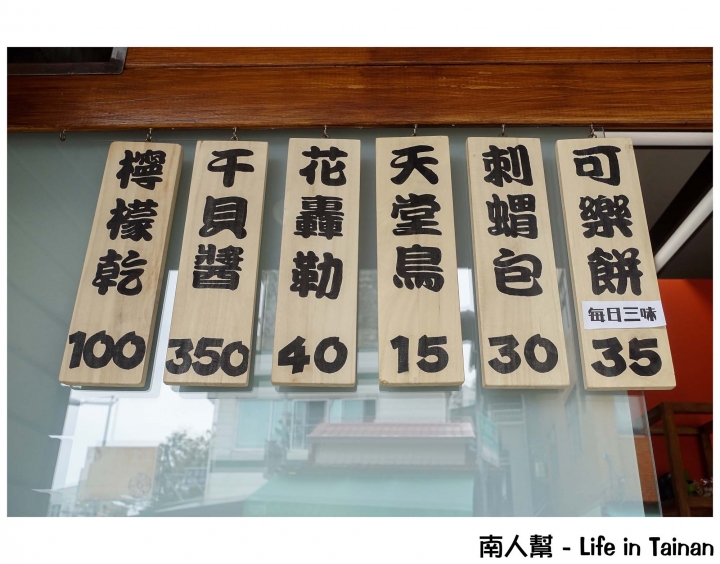 檸檬乾 100
干貝醬 350
花轟勒 40
天堂鳥 15
刺蝟包 30
可樂餅 每日三味 35
南人幫 - Life in Tainan